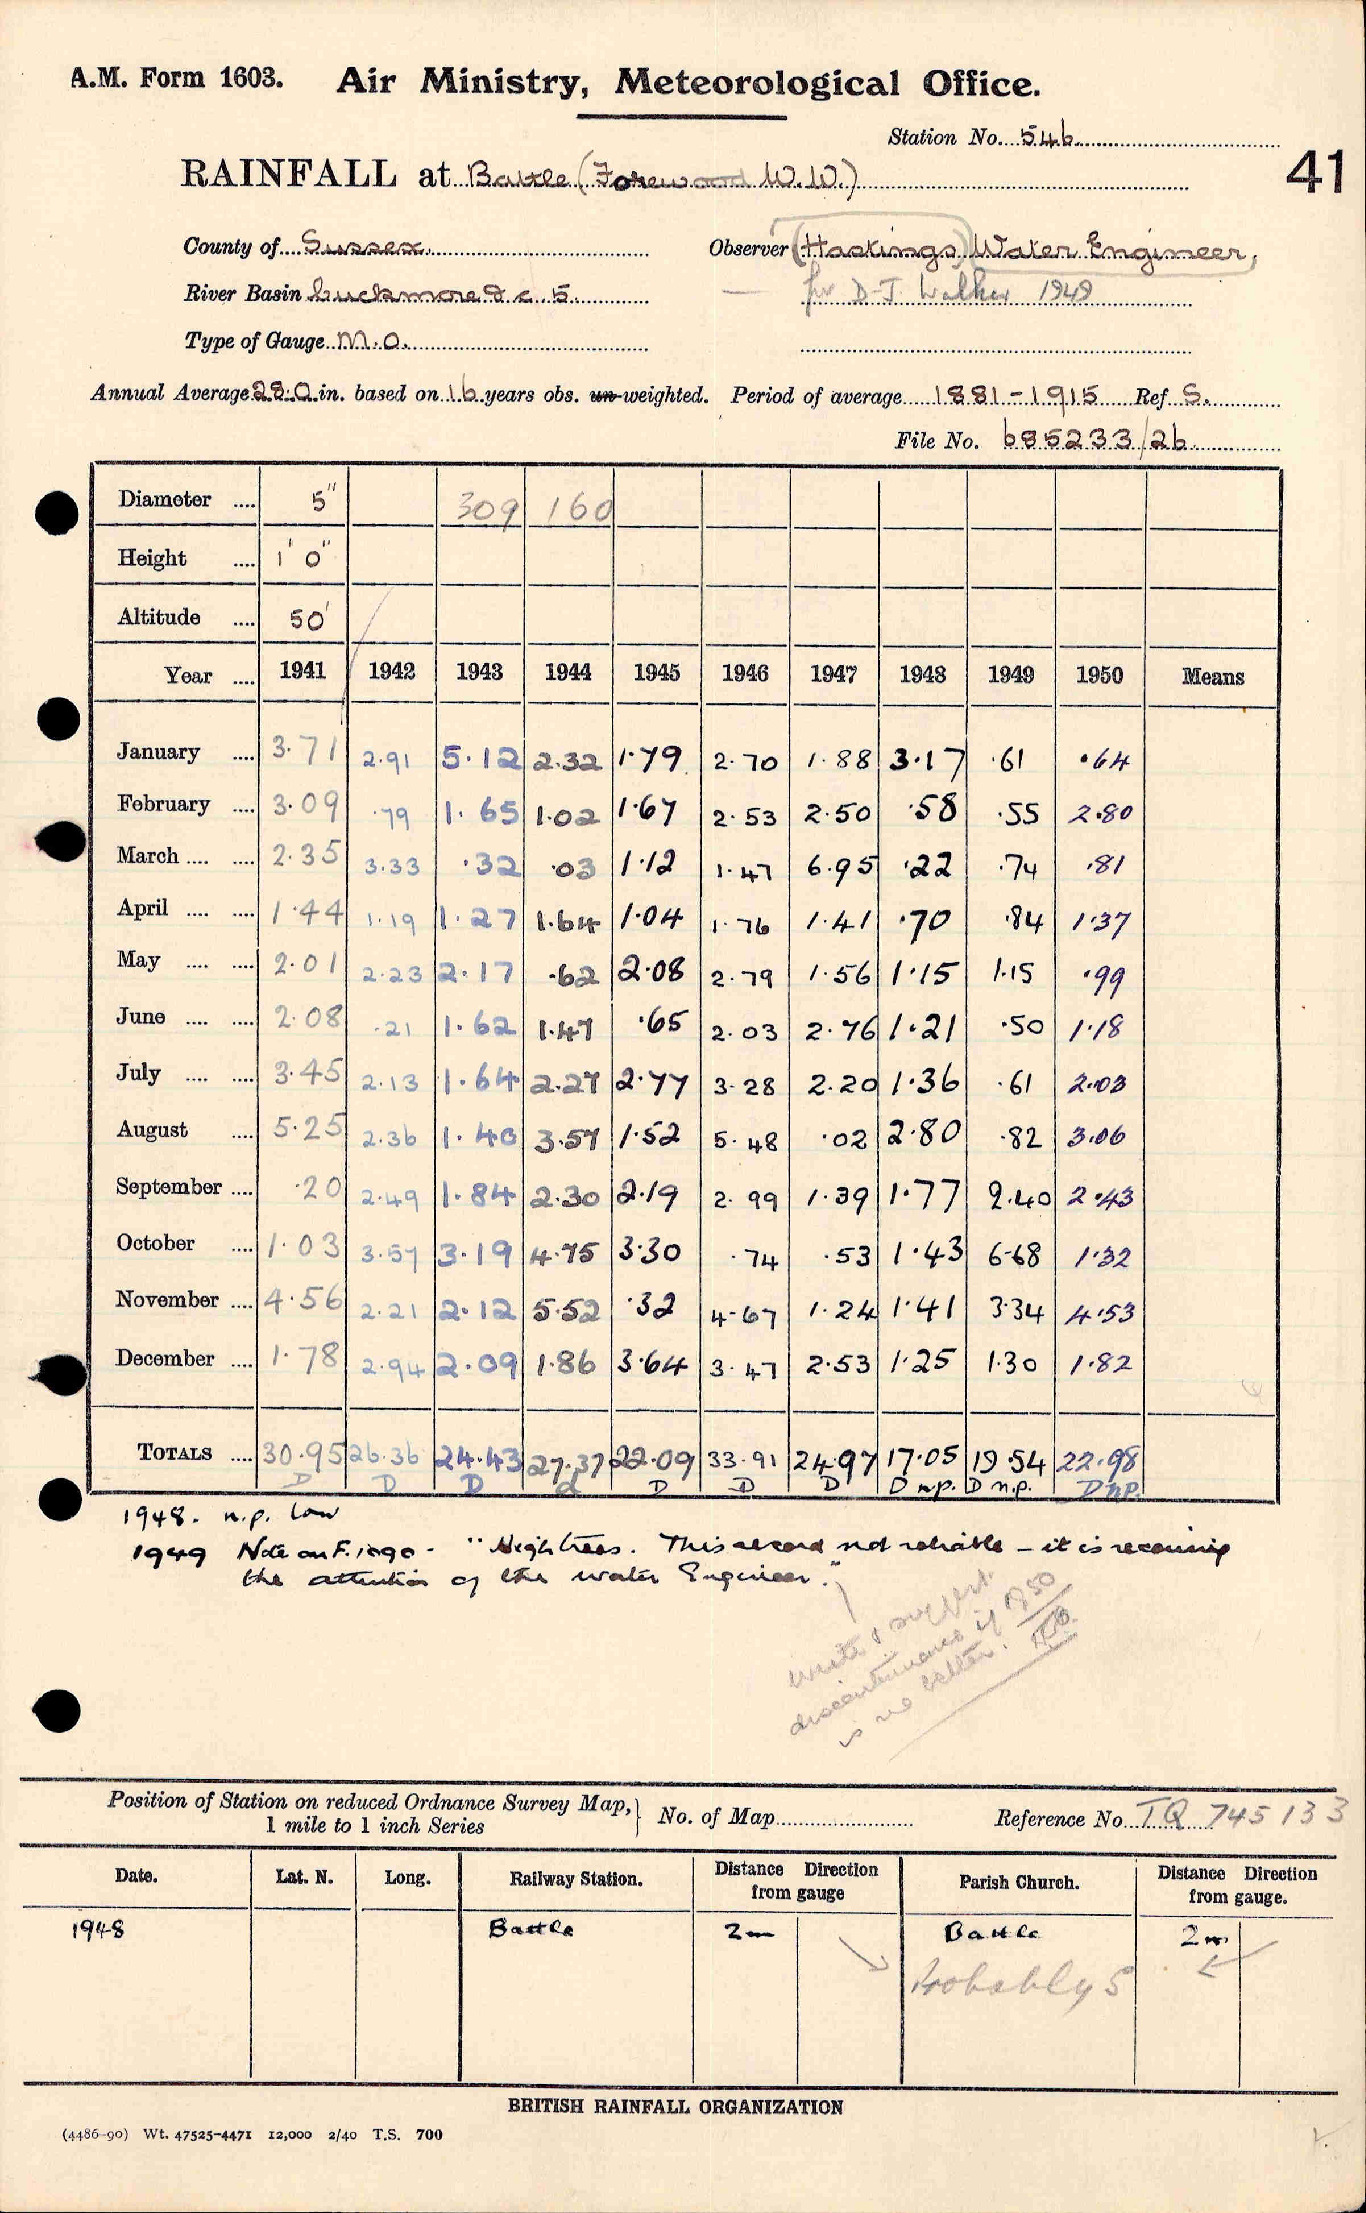 A.M. Form 1603. Air Ministry, Meteorological Office.
Station No. 546
41
RAINFALL at Battle (Forewood W.W.)
County of Sussex Observer (Hastings) Water Engineer,
River Basin Cuckmere & c. 5. for D.J. Walker 1949
Type of Gauge M.O.
Annual Average 28.0 in. based on 16 years obs. un-weighted. Period of average 1881-1915 Ref S.
File No. 685233/26
Diameter .... 5" 309 160
Height .... 1' 0"
Altitude .... 50'
Year .... 1941 1942 1943 1944 1945 1946 1947 1948 1949 1950 Means
January .... 3.71 2.91 5.12 2.32 1.79 2.70 1.88 3.17 .61 .64
February .... 3.09 .79 1.65 1.02 1.67 2.53 2.50 .58 .55 2.80
March .... .... 2.35 3.33 .32 .03 1.12 1.47 6.95 .22 .74 .81
April .... .... 1.44 1.19 1.27 1.64 1.04 1.76 1.41 .70 .84 1.37
May .... .... 2.01 2.23 2.17 .62 2.08 2.79 1.56 1.15 1.15 .99
June .... .... 2.08 .21 1.62 1.47 .65 2.03 2.76 1.21 .50 1.18
July .... .... 3.45 2.13 1.64 2.27 2.77 3.28 2.20 1.36 .61 2.03
August .... 5.25 2.36 1.40 3.57 1.52 5.48 .02 2.80 .82 3.06
September .... .20 2.49 1.84 2.30 2.19 2.99 1.39 1.77 2.40 2.43
October .... 1.03 3.57 3.19 4.75 3.30 .74 .53 1.43 6.68 1.32
November .... 4.56 2.21 2.12 5.52 .32 4.67 1.24 1.41 3.34 4.53
December .... 1.78 2.94 2.09 1.86 3.64 3.47 2.53 1.25 1.30 1.82
TOTALS .... 30.95 26.36 24.43 27.37 22.09 33.91 24.97 17.05 19.54 22.98
D D D d D D D D n.p. D n.p. D n.p.
1948. n.p. low
1949 Note on F.1090 - "High trees. This record not reliable - it is receiving
the attention of the water Engineer."
write & suggest
discontinuance if 1950
is no better.
Position of Station on reduced Ordnance Survey Map,
1 mile to 1 inch Series } No. of Map Reference No. TQ 745133
Date. Lat. N. Long. Railway Station. Distance Direction from gauge Parish Church. Distance Direction from gauge.
1948 Battle 2m Battle 2m
Probably 5
BRITISH RAINFALL ORGANIZATION
(4486-90) Wt. 47525-4471 12,000 2/40 T.S. 700